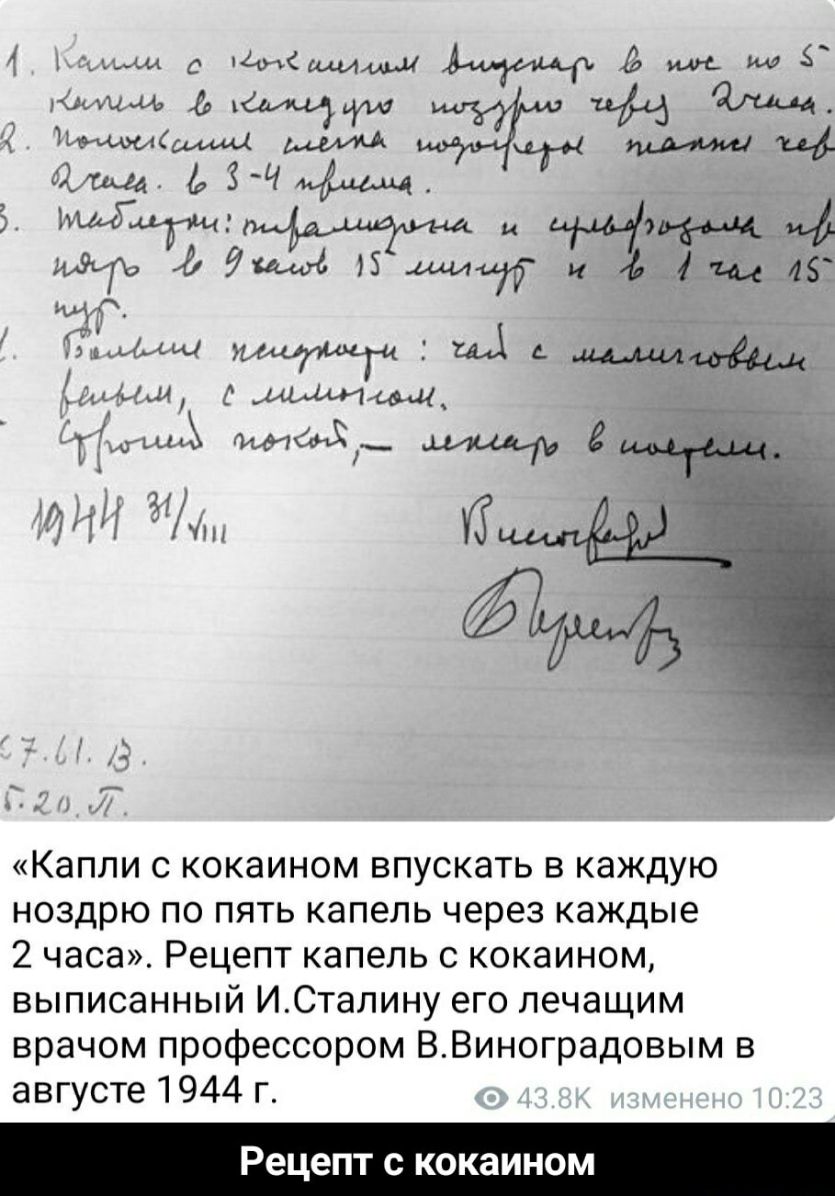 1. Капли с кокаином впускать в нос по 5
капель в каждую ноздрю через 2 часа.
2. Полоскание слегка подогретое чер
2 часа. в 3-4 приёма.
3. Таблетки: пирамидона и сульфозола пр
в 9 часов 15 минут и в 1 час 15
нут.
Больше жидкости: чай с малиновым
реньем, с лимоном.
Строгий покой, — лежать в постели.
1944 31/VIII
Виноградов
7.61. В.
5.20. П.
«Капли с кокаином впускать в каждую
ноздрю по пять капель через каждые
2 часа». Рецепт капель с кокаином,
выписанный И.Сталину его лечащим
врачом профессором В.Виноградовым в
августе 1944 г.
43.8K изменено 10:23
Рецепт с кокаином